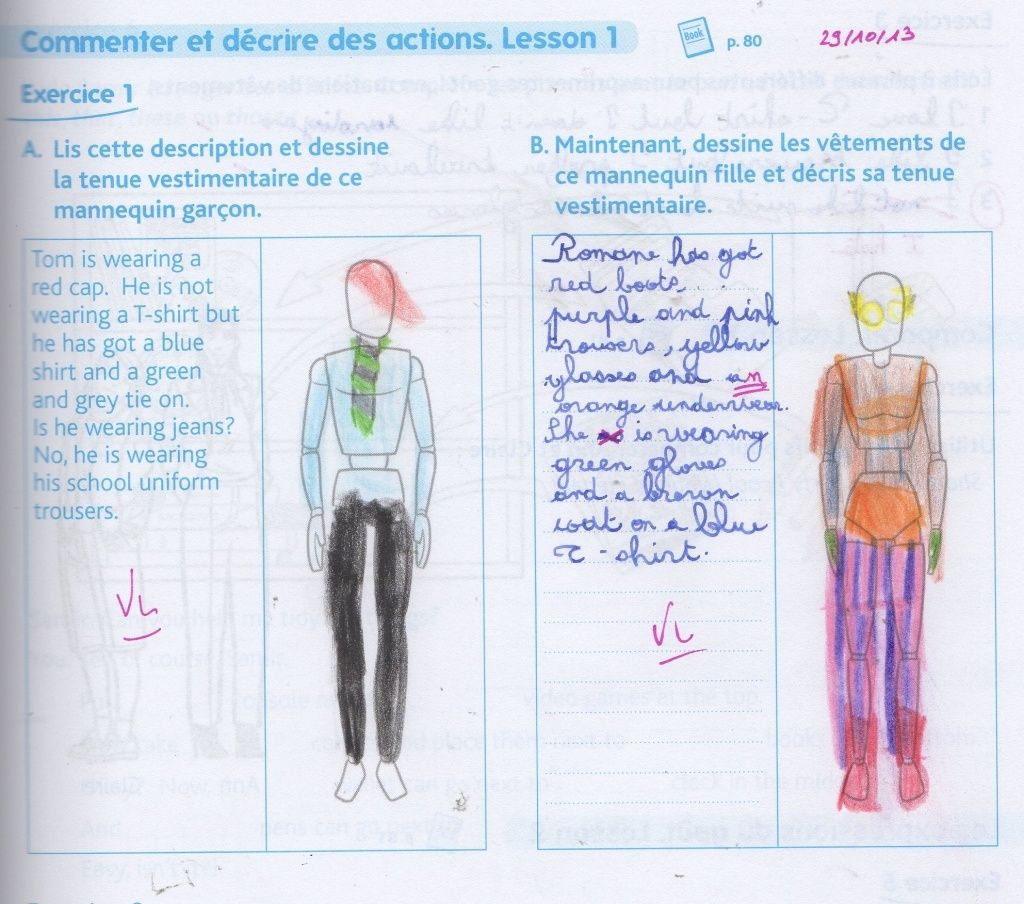 Commenter et décrire des actions. Lesson 1
Book
p. 80
29/10/13
Exercice 1
A. Lis cette description et dessine
la tenue vestimentaire de ce
mannequin garçon.
Tom is wearing a
red cap. He is not
wearing a T-shirt but
he has got a blue
shirt and a green
and grey tie on.
Is he wearing jeans?
No, he is wearing
his school uniform
trousers.
VL
B. Maintenant, dessine les vêtements de
ce mannequin fille et décris sa tenue
vestimentaire.
Romane has got
red boots,
purple and pink
trousers, yellow
glasses and an
orange underwear.
She is wearing
green gloves
and a brown
coat on a blue
T-shirt.
VL